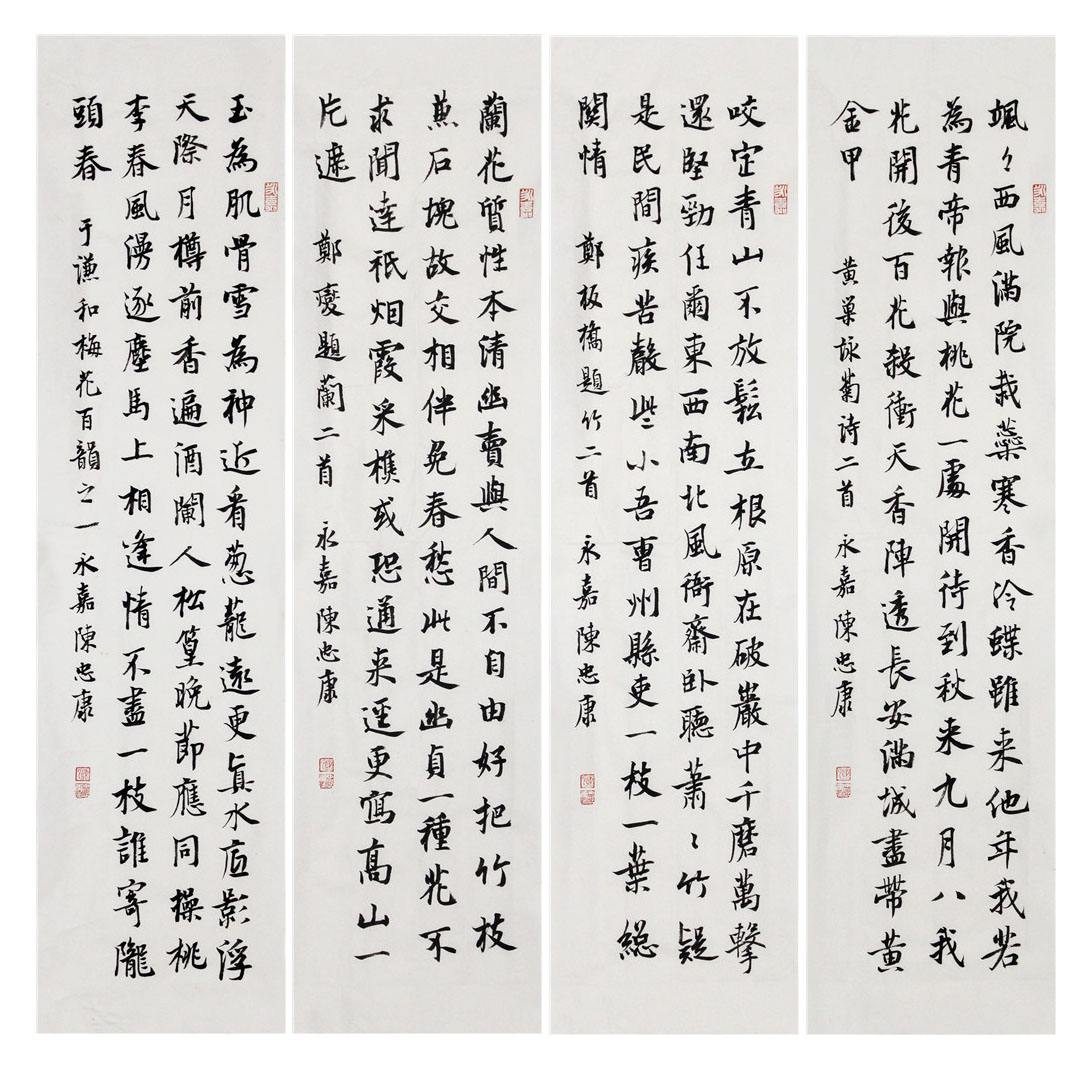 颯々西風滿院栽蘂寒香冷蝶雖来他年我若
為青帝報與桃花一處開待到秋来九月八我
花開後百花殺衝天香陣透長安滿城盡帶黄
金甲
黄巢詠菊诗二首 永嘉陳忠康
咬定青山不放鬆立根原在破巖中千磨萬擊
還堅勁任爾東西南北風衙齋卧聽蕭〻竹疑
是民間疾苦聲些小吾曹州縣吏一枝一葉総
関情
鄭板橋題竹二首 永嘉陳忠康
蘭花質性本清幽賣與人間不自由好把竹枝
兼石塊故交相伴免春愁此是幽貞一種花不
求聞達祇烟霞采樵或恐通来逕更寫高山一
片遮
鄭燮題蘭二首 永嘉陳忠康
玉為肌骨雪為神近看葱蘢遠更真水底影浮
天際月樽前香遍酒闌人松篁晚節應同操桃
李春風漫逐塵馬上相逢情不盡一枝誰寄隴
頭春
于谦和梅花百韻之一 永嘉陳忠康